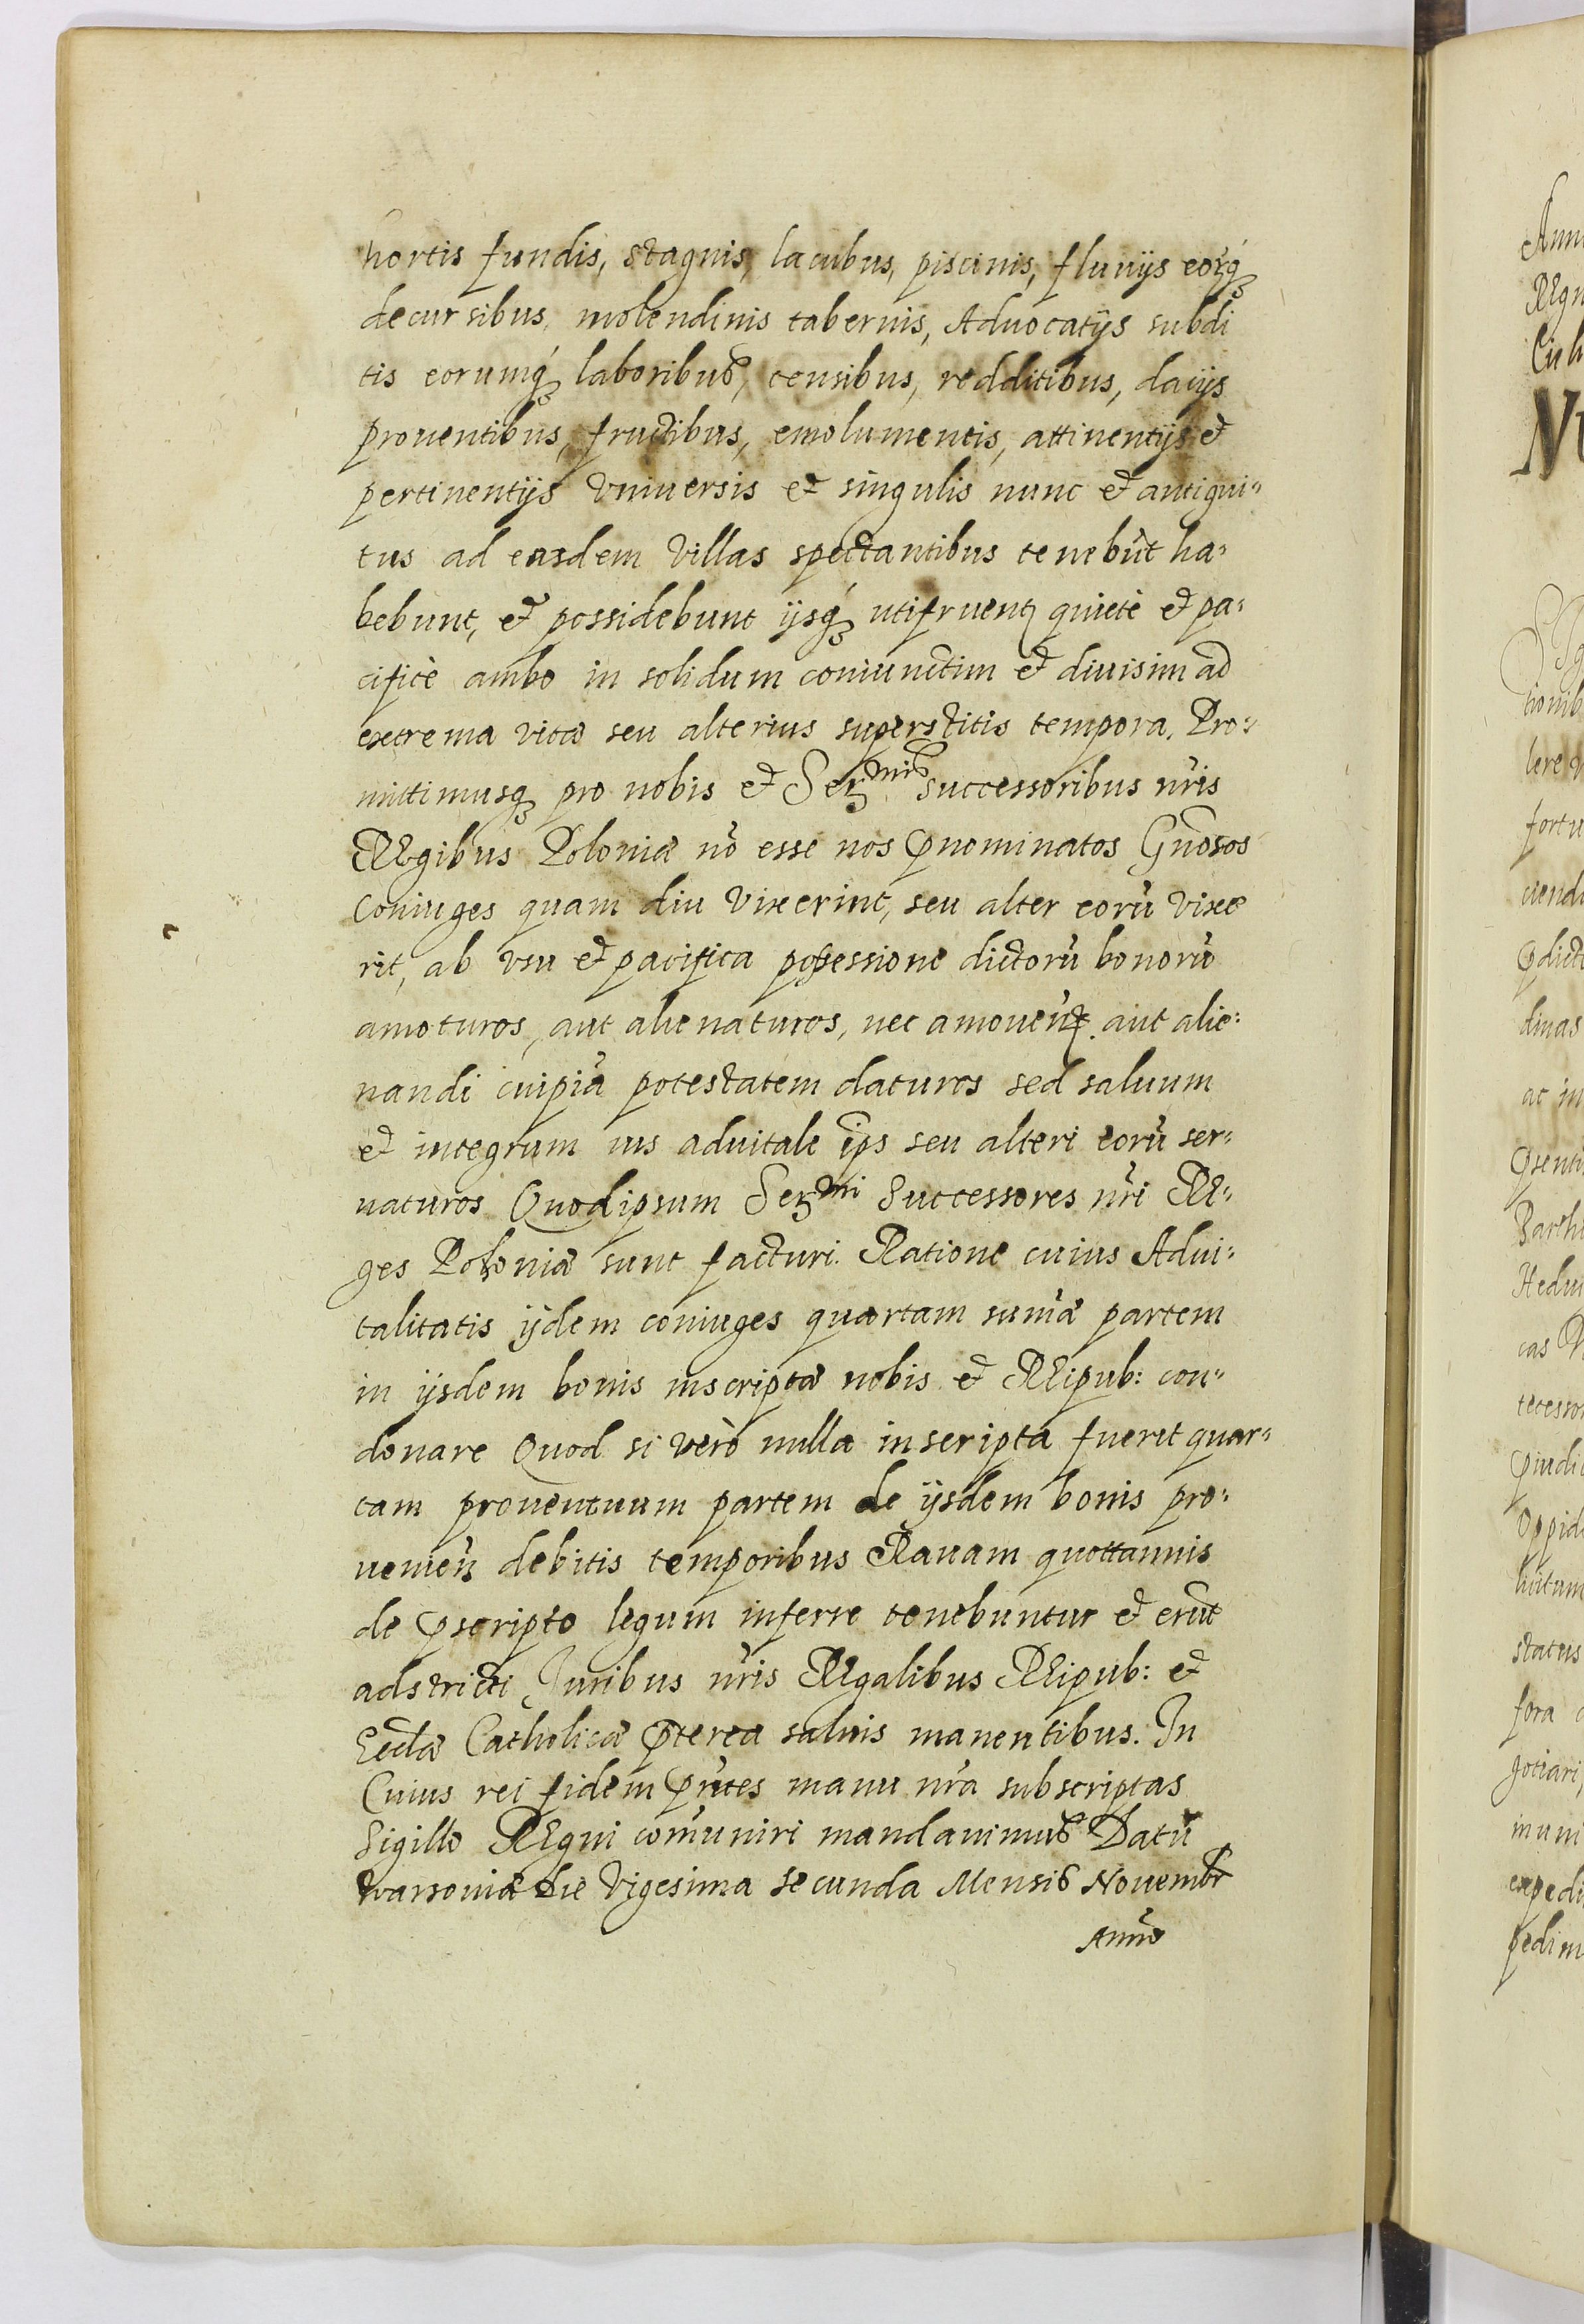 hortis fundis, stagnis, lacubus, piscinis, fluuijs eorq́ꝫ
decursibus, molendinis tabernis, Aduocatijs subdi
tis eorumq́ꝫ laboribus, censibus, redditibus, dacijs
prouentibus, fructibus, emolumentis, attinentijs et
pertinentijs vniuersis et singulis nunc et antiqui⸗
tus ad easdem villas spectantibus tenebūt ha⸗
bebunt, et possidebunt ijsq́ꝫ utifruentꝫ quietè et pa⸗
cificè ambo in solidum coniunctim et diuisim ad
extrema vitæ seu alterius superstitis tempora. Pro⸗
mittimusqꝫ pro nobis et Serᵐⁱˢ successoribus nr̃is
Regibus Poloniæ nō esse nos p̃nominatos Gnõsos
Coniuges quam diu vixerint, seu alter eorũ vixe
rit, ab vsu et pacifica possessione dictorũ bonorũ
amoturos, aut alienaturos, nec amouen̄ꝫ. aut alie⸗
nandi cuipiã potestatem daturos sed saluum
et integrum ius aduitale ip̃s seu alteri eorũ ser⸗
uaturos Quodipsum Serᵐⁱ Successores nr̃i Re⸗
ges Poloniæ sunt facturi. Ratione cuius Adui⸗
talitatis ijdem coniuges quartam sum̃æ partem
in ijsdem bonis inscriptæ nobis et Reipub: con⸗
donare Quod si verò nulla inscripta fuerit quar⸗
tam prouentuum partem de ijsdem bonis pro⸗
uenien̄ debitis temporibus Rauam quottannis
de p̃scripto legum inferre tenebuntur et erũt
adstricti Iuribus nr̃is Regalibus Reipub: et
Eccl̃æ Catholicæ p̃terea saluis manentibus. In
Cuius rei fidem p̃ntes manu nr̃a subscriptas
Sigillo Regni com̃uniri mandauimus Datũ
Warsouiæ Die vigesima secunda Mensis Nouembr
Anno